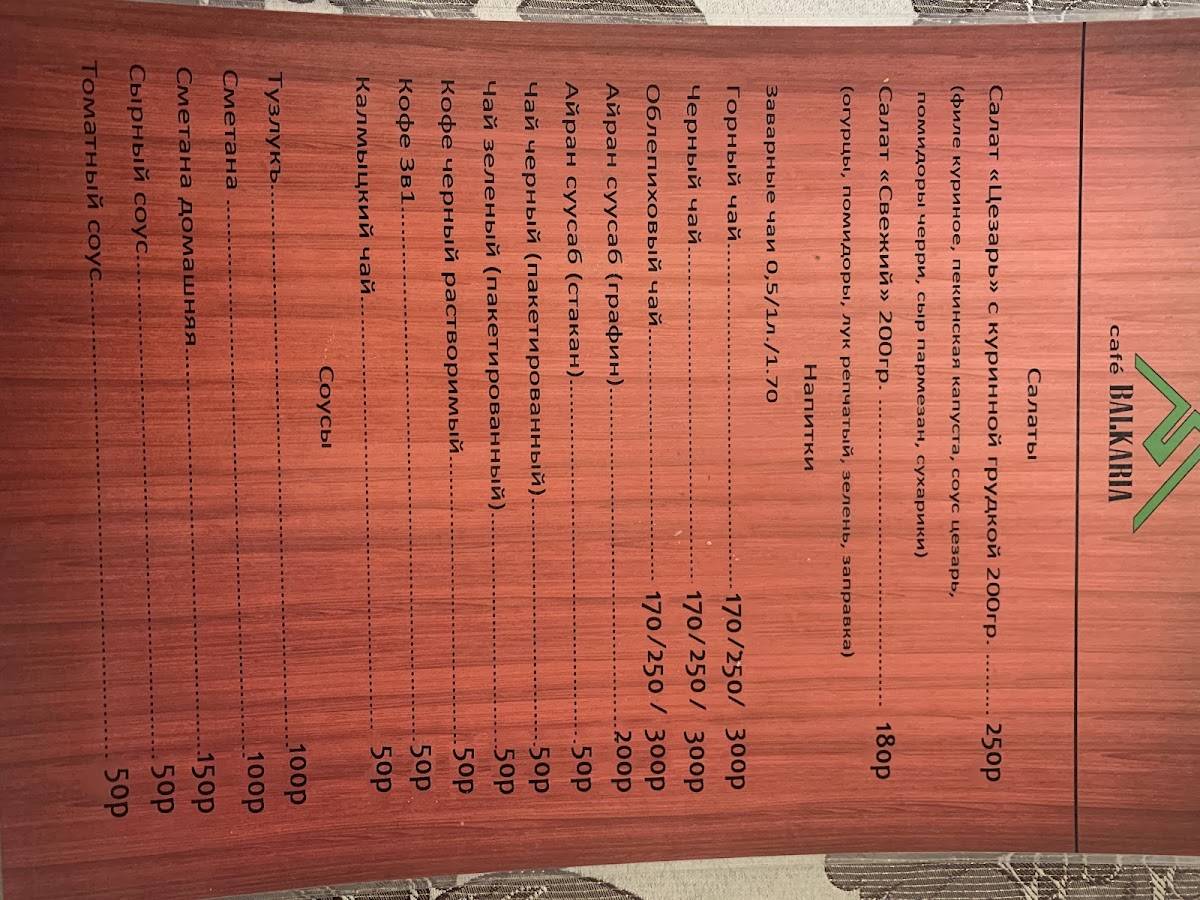 café BALKARIA
Салаты
Салат «Цезарь» с куринной грудкой 200гр. ........ 250р
(филе куриное, пекинская капуста, соус цезарь,
помидоры черри, сыр пармезан, сухарики)
Салат «Свежий» 200гр. ........ 180р
(огурцы, помидоры, лук репчатый, зелень, заправка)
Напитки
Заварные чаи 0,5/1л./1.70
Горный чай........ 170/250/ 300р
Черный чай........ 170/250 / 300р
Облепиховый чай........ 170/250 / 300р
Айран суусаб (графин)........ 200р
Айран суусаб (стакан)........ 50р
Чай черный (пакетированный)........ 50р
Чай зеленый (пакетированный)........ 50р
Кофе черный растворимый........ 50р
Кофе 3в1........ 50р
Калмыцкий чай........ 50р
Соусы
Тузлукъ........ 100р
Сметана ........ 100р
Сметана домашняя........ 150р
Сырный соус........ 50р
Томатный соус........ 50р